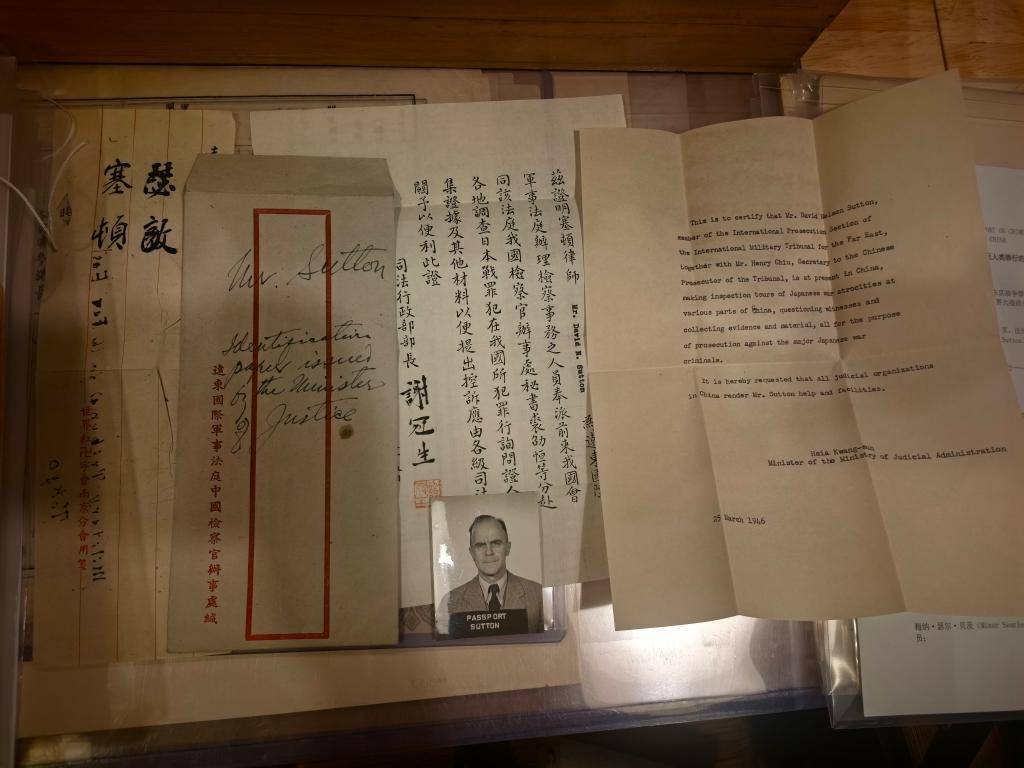 塞頓
瑟敵
世界紅卍字會南京分會用箋
Mr. Sutton
Identification
paper issued
by the Minister
of Justice
遠東國際軍事法庭中國檢察官辦事處緘
茲證明塞頓律師 Mr. David N. Sutton
軍事法庭辦理檢察事務之人員奉派前來我國會
同該法庭我國檢察官辦事處秘書裘劭恒等分赴
各地調查日本戰罪犯在我國所犯罪行詢問證人
集證據及其他材料以便提出控訴應由各級司法
關予以便利此證
司法行政部部長 謝冠生
PASSPORT
SUTTON
This is to certify that Mr. David Nelson Sutton,
member of the International Prosecution Section of
the International Military Tribunal for the Far East,
together with Mr. Henry Chiu, Secretary to the Chinese
Prosecutor of the Tribunal, is at present in China,
making inspection tours of Japanese war atrocities at
various parts of China, questioning witnesses and
collecting evidence and material, all for the purpose
of prosecution against the major Japanese war
criminals.
It is hereby requested that all judicial organizations
in China render Mr. Sutton help and facilities.
Hsia Kwang-sun
Minister of the Ministry of Judicial Administration
25 March 1946
CHINA
Sutton
梅纳·瑟尔·贝茨 (Miner Searle
员: